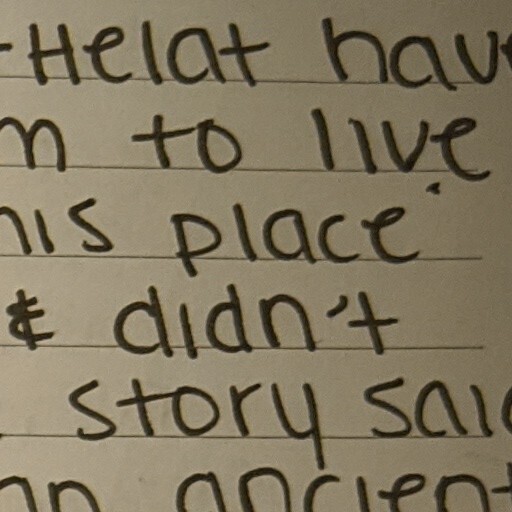 -Helat hav
n to live.
his place
& didn't
story said
an ancient